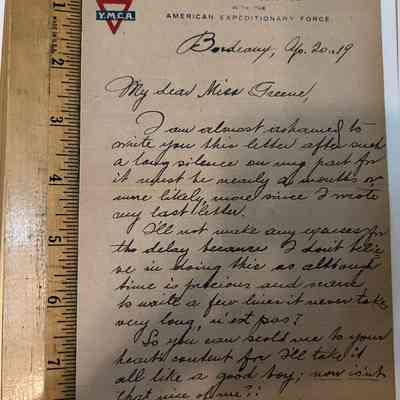 Y.M.C.A.
WITH THE
AMERICAN EXPEDITIONARY FORCE
Bordeaux, Ap. 20 - 19
My dear Miss Greene,
I am almost ashamed to
write you this letter after such
a long silence on my part for
it must be nearly a months or
more likely, more since I wrote
my last letter.
I'll not make any excuses for
the delay because I don't
in doing this as although
time is precious and
to write a few lines it never take
very long, n'est pas?
So you can scold me to your
hearts content for I'll take it
all like a good boy; now isn't
that nice of me?:
1
2
3
4
5
6
7
MADE IN U.S.A.